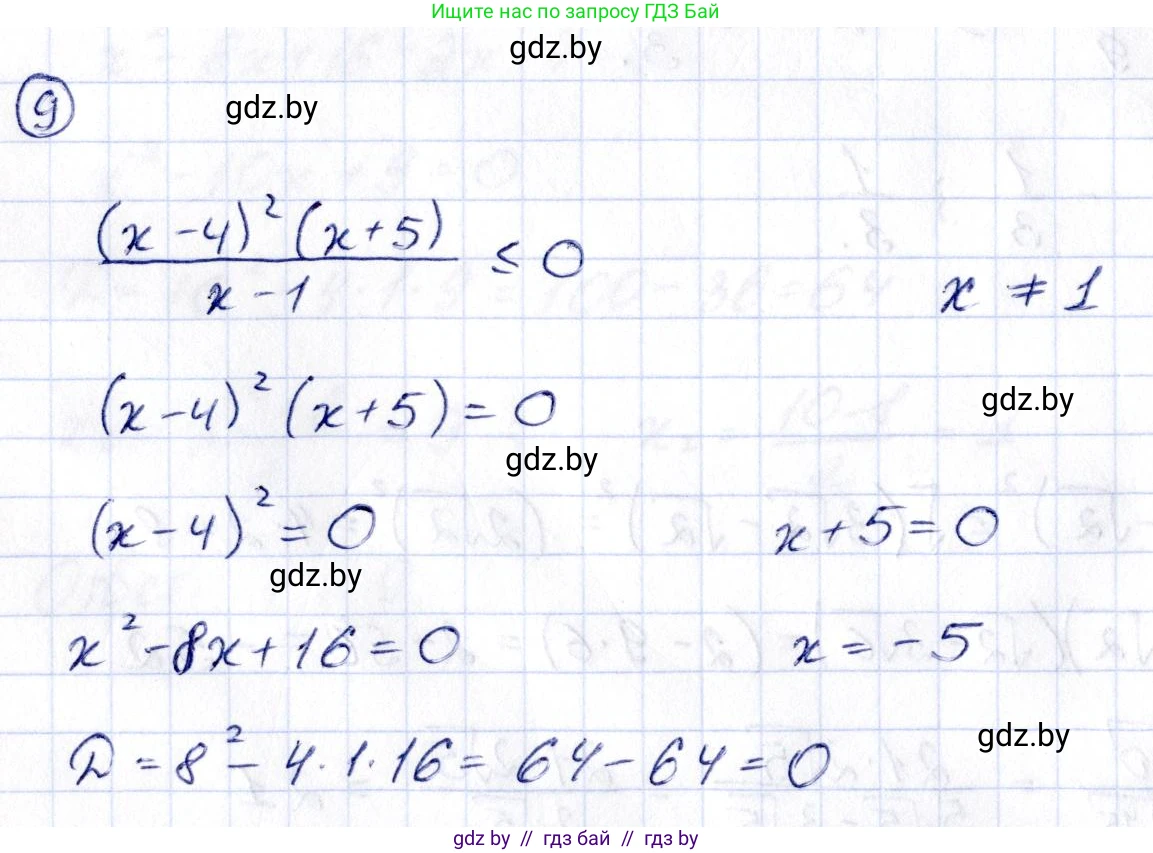 Ищите нас по запросу ГДЗ Бай
gdz.by
9
gdz.by
(x-4)²(x+5)
x-1
≤ 0
x ≠ 1
(x-4)²(x+5)=0
gdz.by
gdz.by
(x-4)²=0
x+5=0
gdz.by
x²-8x+16=0
x=-5
gdz.by
D=8²-4·1·16=64-64=0
gdz by // гдз бай // гдз by